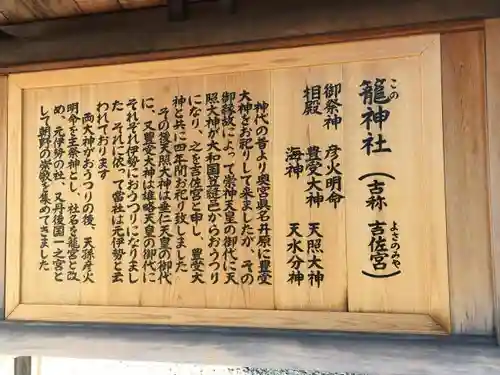 籠神社（吉称 吉佐宮）
この
よさのみや
御祭神 彦火明命
相殿 豊受大神 天照大神
海神 天水分神
神代の昔より奥宮眞名井原に豊受
大神をお祀りして来ましたが、その
御縁故によって崇神天皇の御代に天
照大神が大和国笠縫邑からおうつり
になり、之を吉佐宮と申し、豊受大
神と共に四年間お祀り致しました
その後天照大神は垂仁天皇の御代
に、又豊受大神は雄略天皇の御代に
それぞれ伊勢におうつりになりまし
た それに依って當社は元伊勢と云
われております
両大神がおうつりの後、天孫彦火
明命を主祭神とし、社名を籠宮と改
め、元伊勢の社、又丹後国一之宮と
して朝野の崇敬を集めてきました